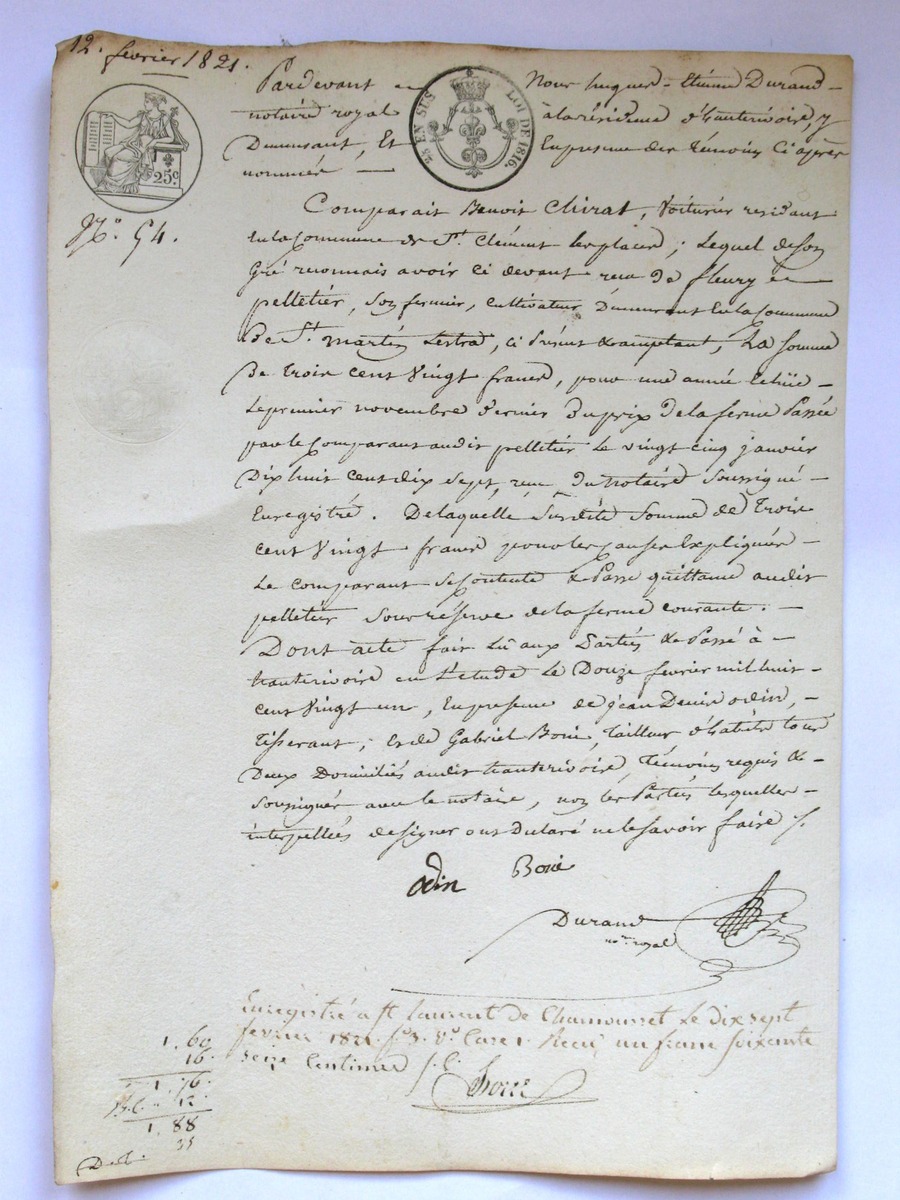 12. fevrier 1821.
Pardevant Nous hugues-Etienne Durand
notaire royal à la résidence d'hauterivoire, y
Demeurant, Et En presence des témoins Ci après
nommés —
25 EN SUS LOI DE 1816.
25c.
N.° 54.
Comparait Benoit Chirat, Voiturier residant
En la Commune de St. Clément les places; Lequel de Son
Gré reconnais avoir ci devant recu De fleury
pelletier, Son fermier, cultivateur Demeurant En la Commune
De St. martin Lestra, ci présent & acceptant, La Somme
De trois cent Vingt francs, pour une année Echüe
Le premier novembre dernier du prix de la ferme Passée
par le Comparant audit pelletier Le vingt cinq janvier
Dix huit cent dix Sept, recu du Notaire Soussigné
Enregistré. De laquelle Susdite Somme de trois
cent Vingt francs pour les causes Expliquées
Le comparant Se Contente & Passe quittance audit
pelletier sous réserve de la ferme courante. —
Dont acte fait Lû aux Parties & Passé à
hauterivoire en L'etude Le Douze fevrier mil huit
cent Vingt un, En presence de jean Denis odin,
Tisserant, Et de Gabriel Boné, Tailleur d'habits tous
Deux Domiciliés audit hauterivoire, Témoins requis &
Soussignés avec le notaire, non les Parties lesquelles
interpellées de signer ont Declaré ne le Savoir faire
odin Boné
Durand
not.re royal
Enregistré a St laurent de Chamousset le dix sept
fevrier 1821. f° 3. V° Case 1. Recu un franc soixante
seize Centimes
1. 60
16.
1. 76.
12.
1. 88
35